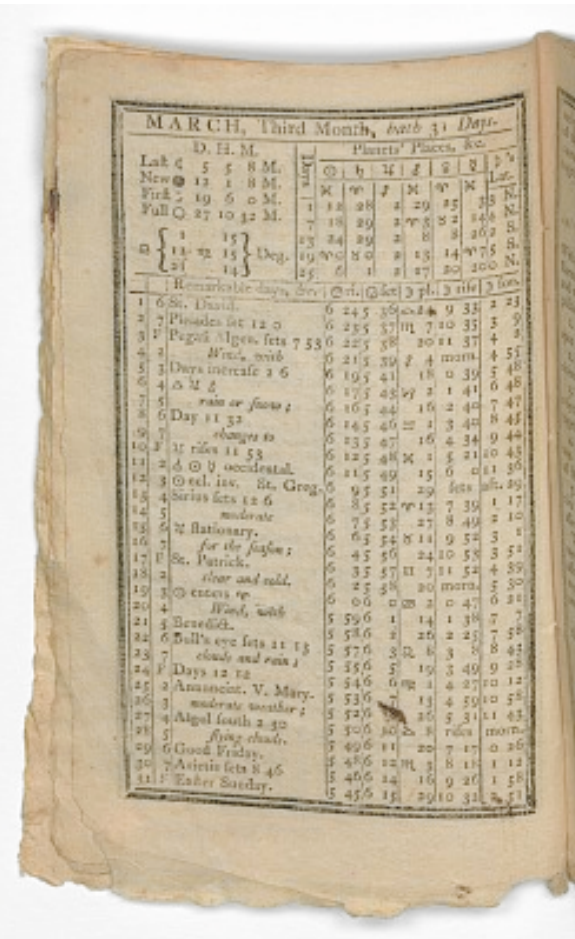 MARCH, Third Month, hath 31 Days.
D. H. M.
Last ☾ 5 5 8 M.
New ● 12 1 8 M.
First 19 6 0 M.
Full ○ 27 10 32 M.
Deg.
Planets' Places, &c.
Days ☉ ♄ ♃ ♂ ♀ ☿ ☽'s Lat.
1 12 28 2 29 25
7 18 29 2
13 24 29 2 8 8
19
25 6 1 2 27 20
Remarkable days, &c. ☉ ri. ☉ set ☽ pl. ☽ rise ☽ sou.
1 6 St. David. 6 24 5 36 9 33 2 23
2 7 Pleiades set 12 0 6 23 5 37 ♏ 7 10 35 3 9
3 F Pegasi Algen. sets 7 53 6 22 5 38 20 11 37 4
4 2 Wind, with 6 21 5 39 4 morn. 4 55
5 3 Days increase 2 6 6 19 5 41 18 0 39 5 48
6 4 6 17 5 43 2 1 41 6 48
7 5 rain or snow; 6 16 5 44 16 2 40 7 47
8 6 Day 11 32 6 14 5 46 1 3 40 8 45
9 7 changes to 6 13 5 47 16 4 34 9 44
10 F rises 11 53 6 12 5 48 1 5 21 10 43
11 2 ☌ ☉ ☿ occidental. 6 11 5 49 15 6 0 11 36
12 3 ☉ ecl. inv. St. Greg. 6 9 5 51 29 sets aft. 29
13 4 Sirius sets 12 6 6 8 5 52 ♈ 13 7 39 1 17
14 5 moderate 6 7 5 53 27 8 49 2 10
15 6 stationary. 6 6 5 54 ♉ 11 9 52 3
16 7 for the season; 6 4 5 56 24 10 53 3 51
17 F St. Patrick. 6 3 5 57 ♊ 7 11 52 4 39
18 2 clear and cold. 6 2 5 58 20 morn. 5 30
19 3 ☉ enters ♈ 6 0 6 0 ♋ 2 0 47 6 21
20 4 Wind, with 5 59 6 1 14 1 38 7 7
21 5 Benedict. 5 58 6 2 26 2 25 7 58
22 6 Bull's eye sets 11 13 5 57 6 3 ♌ 8 3 8 8 43
23 7 clouds and rain; 5 55 6 5 19 3 49 9 28
24 F Days 12 12 5 54 6 6 ♍ 1 4 27 10 12
25 2 Annunciat. V. Mary. 5 53 6 7 13 4 59 10 58
26 3 moderate weather; 5 52 6 26 5 31 11 43
27 4 Algol south 2 30 5 50 6 10 8 rises morn.
28 5 flying clouds. 5 49 6 11 20 7 17 0 26
29 6 Good Friday. 5 48 6 12 ♏ 3 8 18 1 12
30 7 Arietis sets 8 46 5 46 6 14 16 9 26 1 58
31 F Easter Sunday. 5 45 6 15 29 10 32 2 51